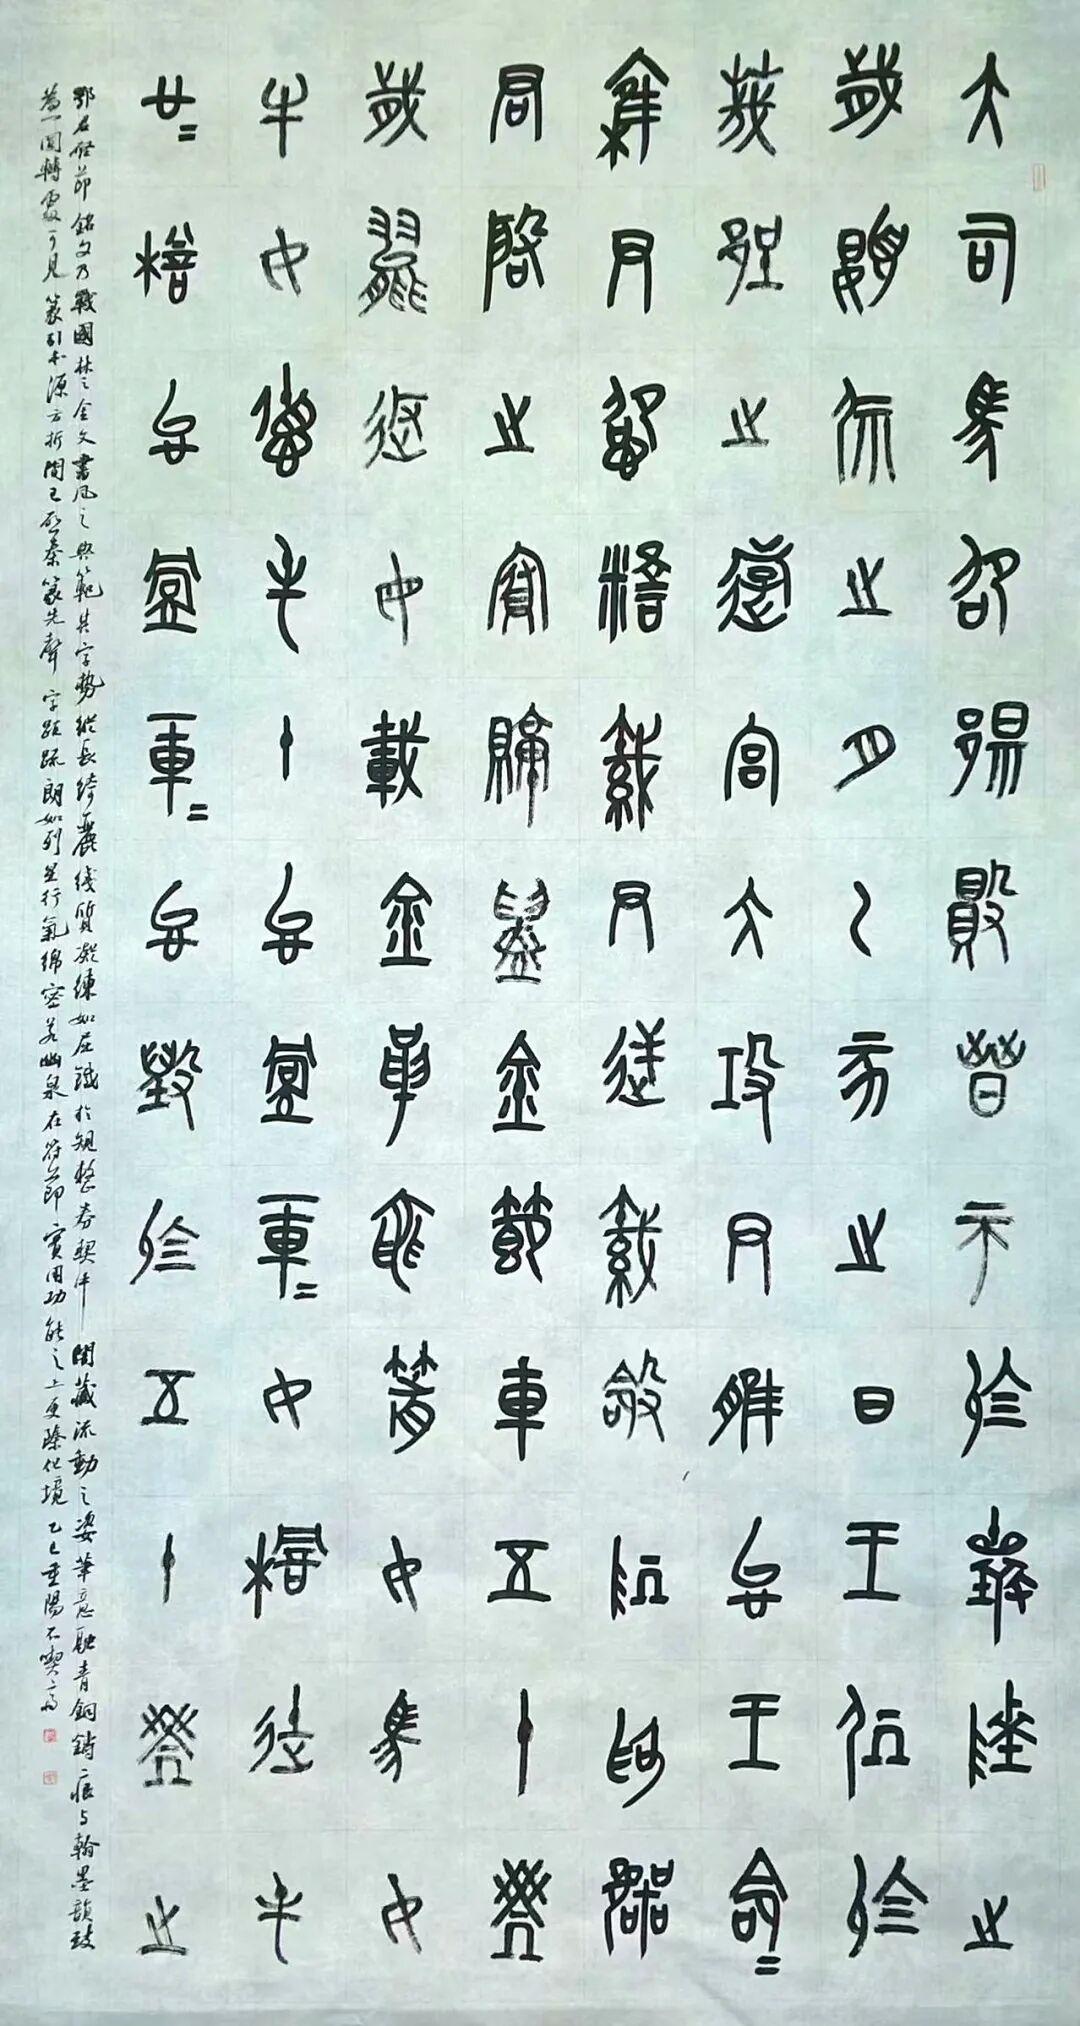 大司馬卲剔敗晉帀於襄陵之
歲夏之月乙亥之日王凥於
茂郢之遊宮大攻尹脽以王命=
集尹糈裁尹逆裁令阢鄂
君啟之府賡鑄金節車五十乘
歲罷返毋載金革黽箭女馬女
牛女屯十以堂車=女檐徒屯
廿=檐以堂車=以毀於五十乘之
鄂君啓節銘文乃戰國楚之金文書風之典範其字勢縱長綺麗綫質凝練如屈鐵於規整券契中闇藏流動之姿筆意融青銅鑄痕与翰墨韻致
為一圓轉處可見篆引本源方折間已啟秦篆先聲字距疏朗如列星行氣綿密若幽泉在符節實用功能之上更臻化境乙巳重陽不喫齋